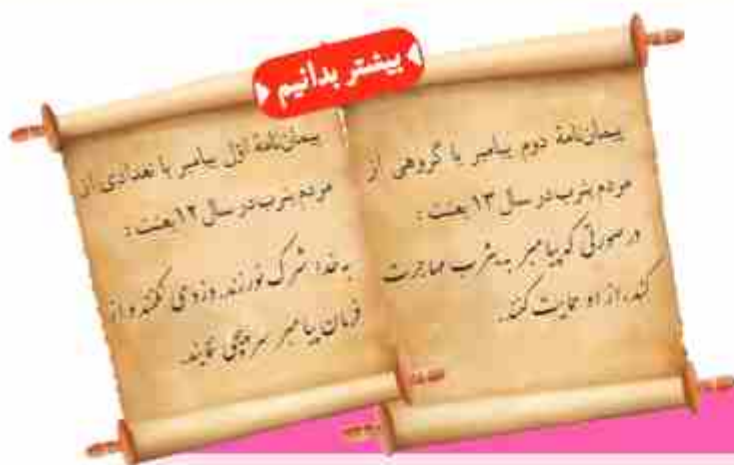 بیشتر بدانیم
پیمان‌نامهٔ دوم پیامبر با گروهی از
مردم یثرب در سال ۱۳ بعثت :
در صورتی که پیامبر به یثرب مهاجرت
کند، از او حمایت کنند.
پیمان‌نامهٔ اوّل پیامبر با تعدادی از
مردم یثرب در سال ۱۲ بعثت :
به خدا شرک نورزند، دزدی نکنند و از
فرمان پیامبر سرپیچی ننمایند.